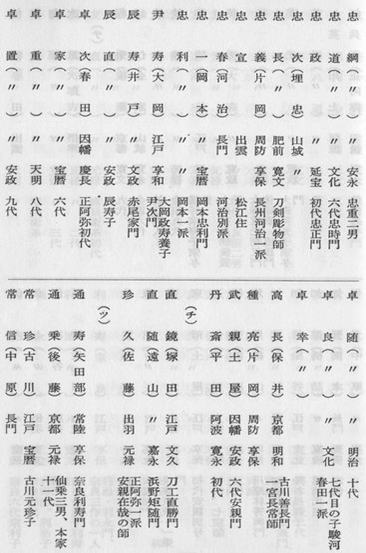 忠 綱(〃) 〃 安永 忠重二男
忠 道(〃) 〃 文化 六代忠時門
忠 政 〃 〃 延宝 初代忠正門
忠 次(埋忠) 山城
忠 長(〃) 肥前 寛文 刀剣彫物師
忠 義(片岡) 周防 享保 長州河治一派
忠 宣 出雲 松江住
忠 春(河治) 長門 河治別派
忠 一(岡本) 〃 宝暦 岡本忠利門
忠 利(〃) 〃 岡本一派
尹 寿(大岡) 江戸 享和 大岡政寿養子
尹次門
辰 寿(井戸) 〃 文政 赤尾家門
辰 直(〃) 〃 安政 辰寿子
卓 次(春田) 因幡 慶長 正阿弥初代
卓 家(〃) 〃 宝暦 六代
卓 重(〃) 〃 天明 八代
卓 置(〃) 〃 安政 九代
卓 随(〃) 〃 明治 十代
卓 良(〃) 〃 文化 七代目の子駿河
春田一派
卓 幸(〃)
高 長(保井) 京都 明和 古川善長門
一宮長常師
種 亮(片岡) 周防 享保
武 親(土屋) 因幡 安政 六代安親門
丹 斎(平田) 阿波 寛永 初代
(チ)
直 鏡(塚田) 江戸 文久 刀工直勝門
直 随(遠山) 〃 嘉永 浜野矩随門
珍 久(佐藤) 出羽 元禄 正阿弥一派
安親在哉の師
(ツ)
通 寿(矢田部) 常陸 享保 奈良利寿門
通 乗(後藤) 京都 元禄 仙乗三男、本家
十一代
常 珍(古川) 江戸 宝暦 古川元珍子
常 信(中原) 長門